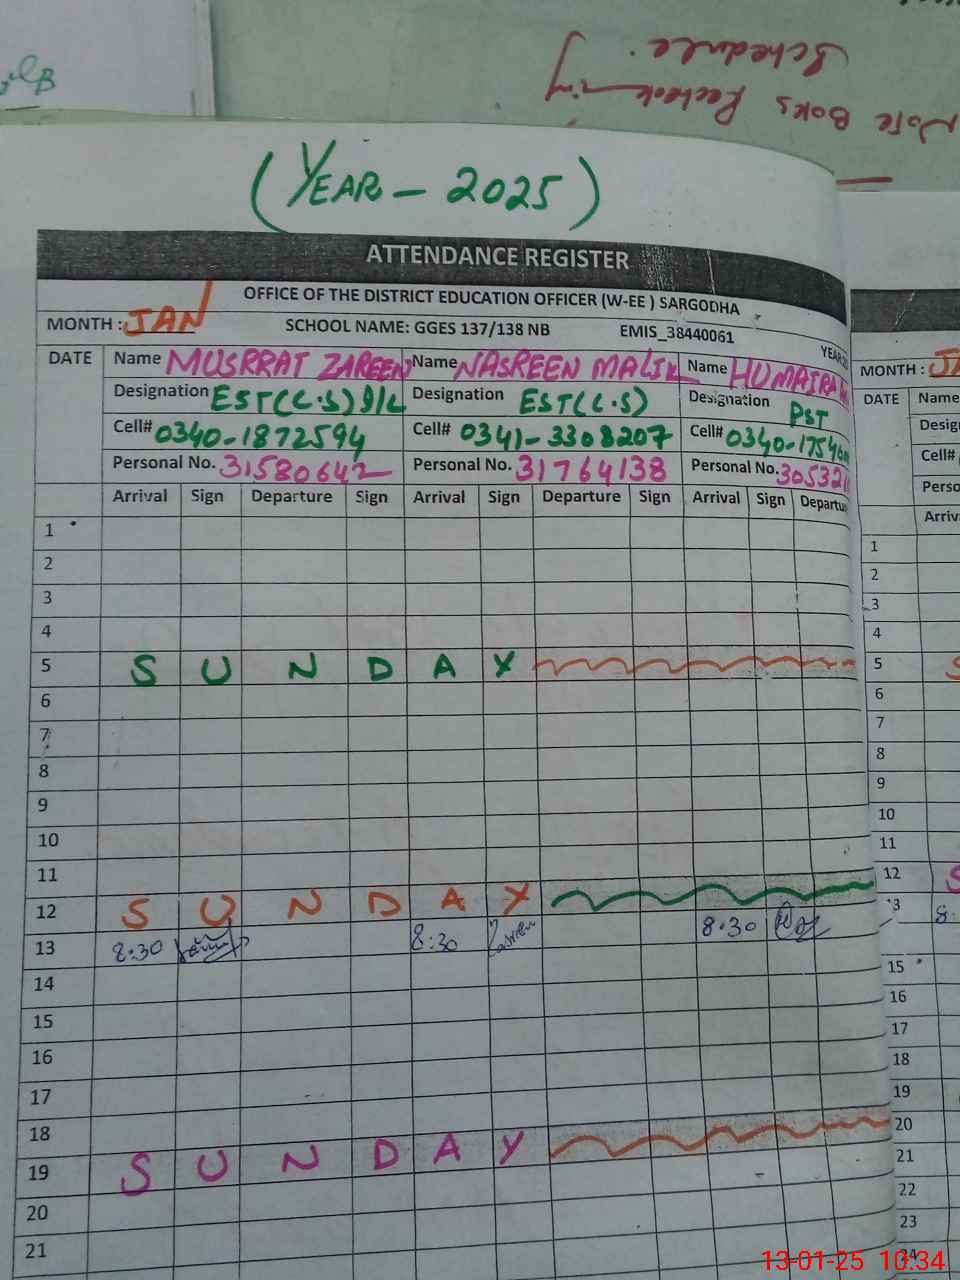 Note Books Recheck
ing
Schedule.
(YEAR - 2025)
ATTENDANCE REGISTER
OFFICE OF THE DISTRICT EDUCATION OFFICER (W-EE ) SARGODHA
MONTH : JAN SCHOOL NAME: GGES 137/138 NB EMIS_38440061
DATE Name MUSRRAT ZAREEN Name NASREEN MALIK Name HUMAIRA
Designation EST(C.S) I/C Designation EST(C.S) Designation PST
Cell# 0340-1872594 Cell# 0341-3308207 Cell# 0340-1754
Personal No. 31580642 Personal No. 31764138 Personal No. 305321
Arrival Sign Departure Sign Arrival Sign Departure Sign Arrival Sign Departu
1
2
3
4
5 S U N D A Y
6
7
8
9
10
11
12 S U N D A Y
13 8:30 8:30 Nasreen 8:30
14
15
16
17
18
19 S U N D A Y
20
21
MONTH : JA
DATE Name
Desig
Cell#
Perso
Arriv
1
2
3
4
5 S
6
7
8
9
10
11
12 S
13 8:
15
16
17
18
19
20
21
22
23
24
13-01-25 10:34